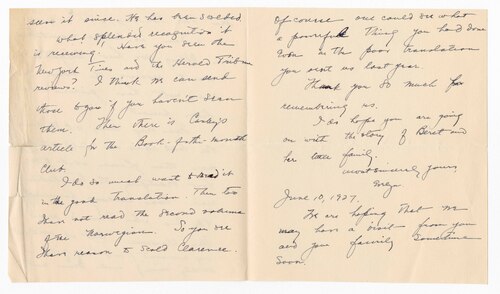 seen it since. He has been scolded
What splendid recognition it
is receiving! Have you seen the
New York Times and the Herold Tribune
reviews? I think we can send
those to you if you haven't seen
them. Then there is Canby's
article for the Book-of-the-month
Club.
I do so much want to read it
in the good translation. Then too
I have not read the second volume
of the Norwegian. So you see
I have reason to scold Clarence.
Of course one could see what
a powerful thing you had done
even in the poor translation
you sent us last year.
Thank you so much for
remembering us.
I do hope you are going
on with the story of Beret and
her family.
Most sincerely yours,
June 10, 1927.
We are hoping that we
may have a visit from you
and your family sometime
soon.